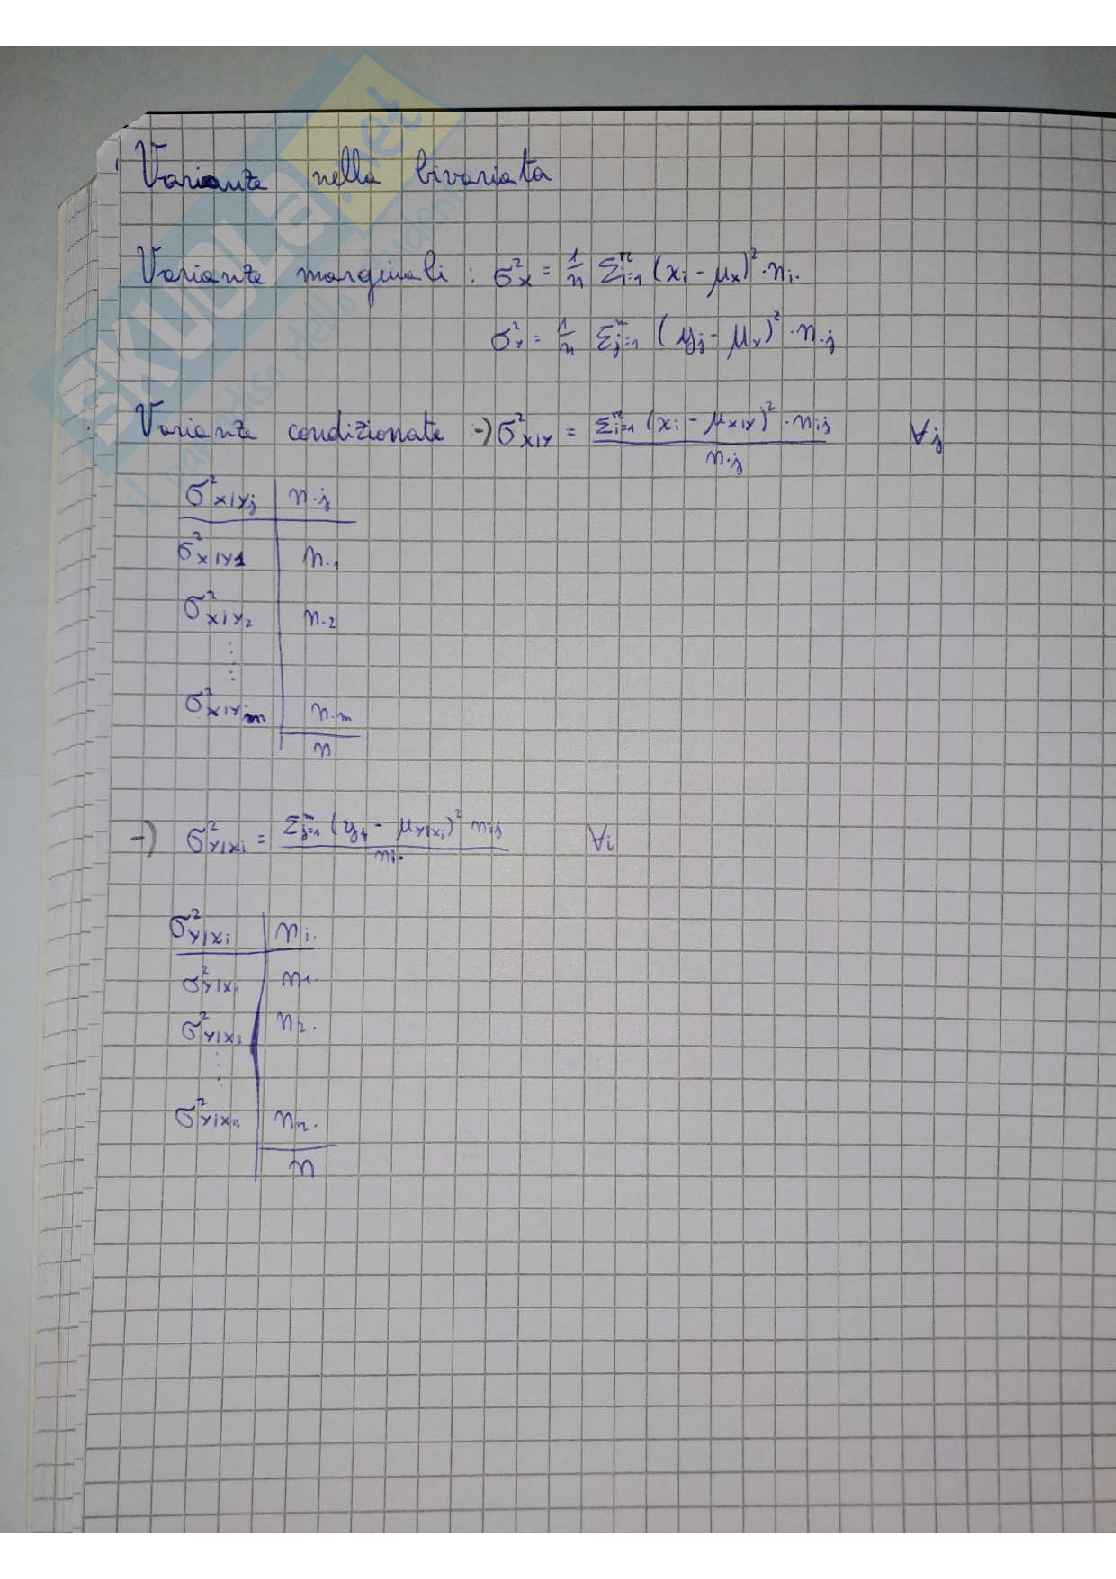 Varianza nella bivariata
Varianze marginali: σ²x = 1/n Σⁿi=1 (xi - μx)² · ni.
σ²Y = 1/n Σᵐj=1 (yj - μY)² · n.j
Varianze condizionate -> σ²X|Y = Σⁿi=1 (xi - μX|Y)² · nij / n.j ∀j
σ²X|Yj | n.j
σ²X|Y1 | n.1
σ²X|Y2 | n.2
σ²X|Ym | n.m
n
-> σ²Y|Xi = Σᵐj=1 (yj - μY|Xi)² nij / ni. ∀i
σ²Y|Xi | ni.
σ²Y|X1 | n1.
σ²Y|X2 | n2.
σ²Y|Xn | nn.
n
SKUOLA.net